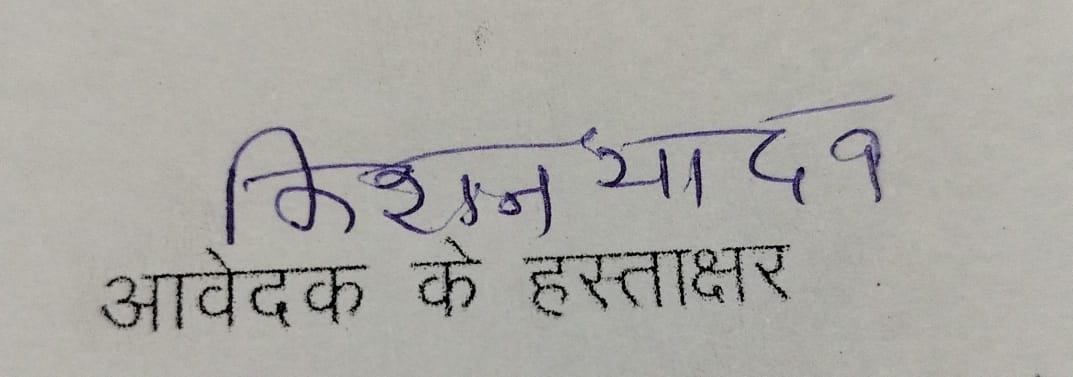 किशन यादव
आवेदक के हस्ताक्षर